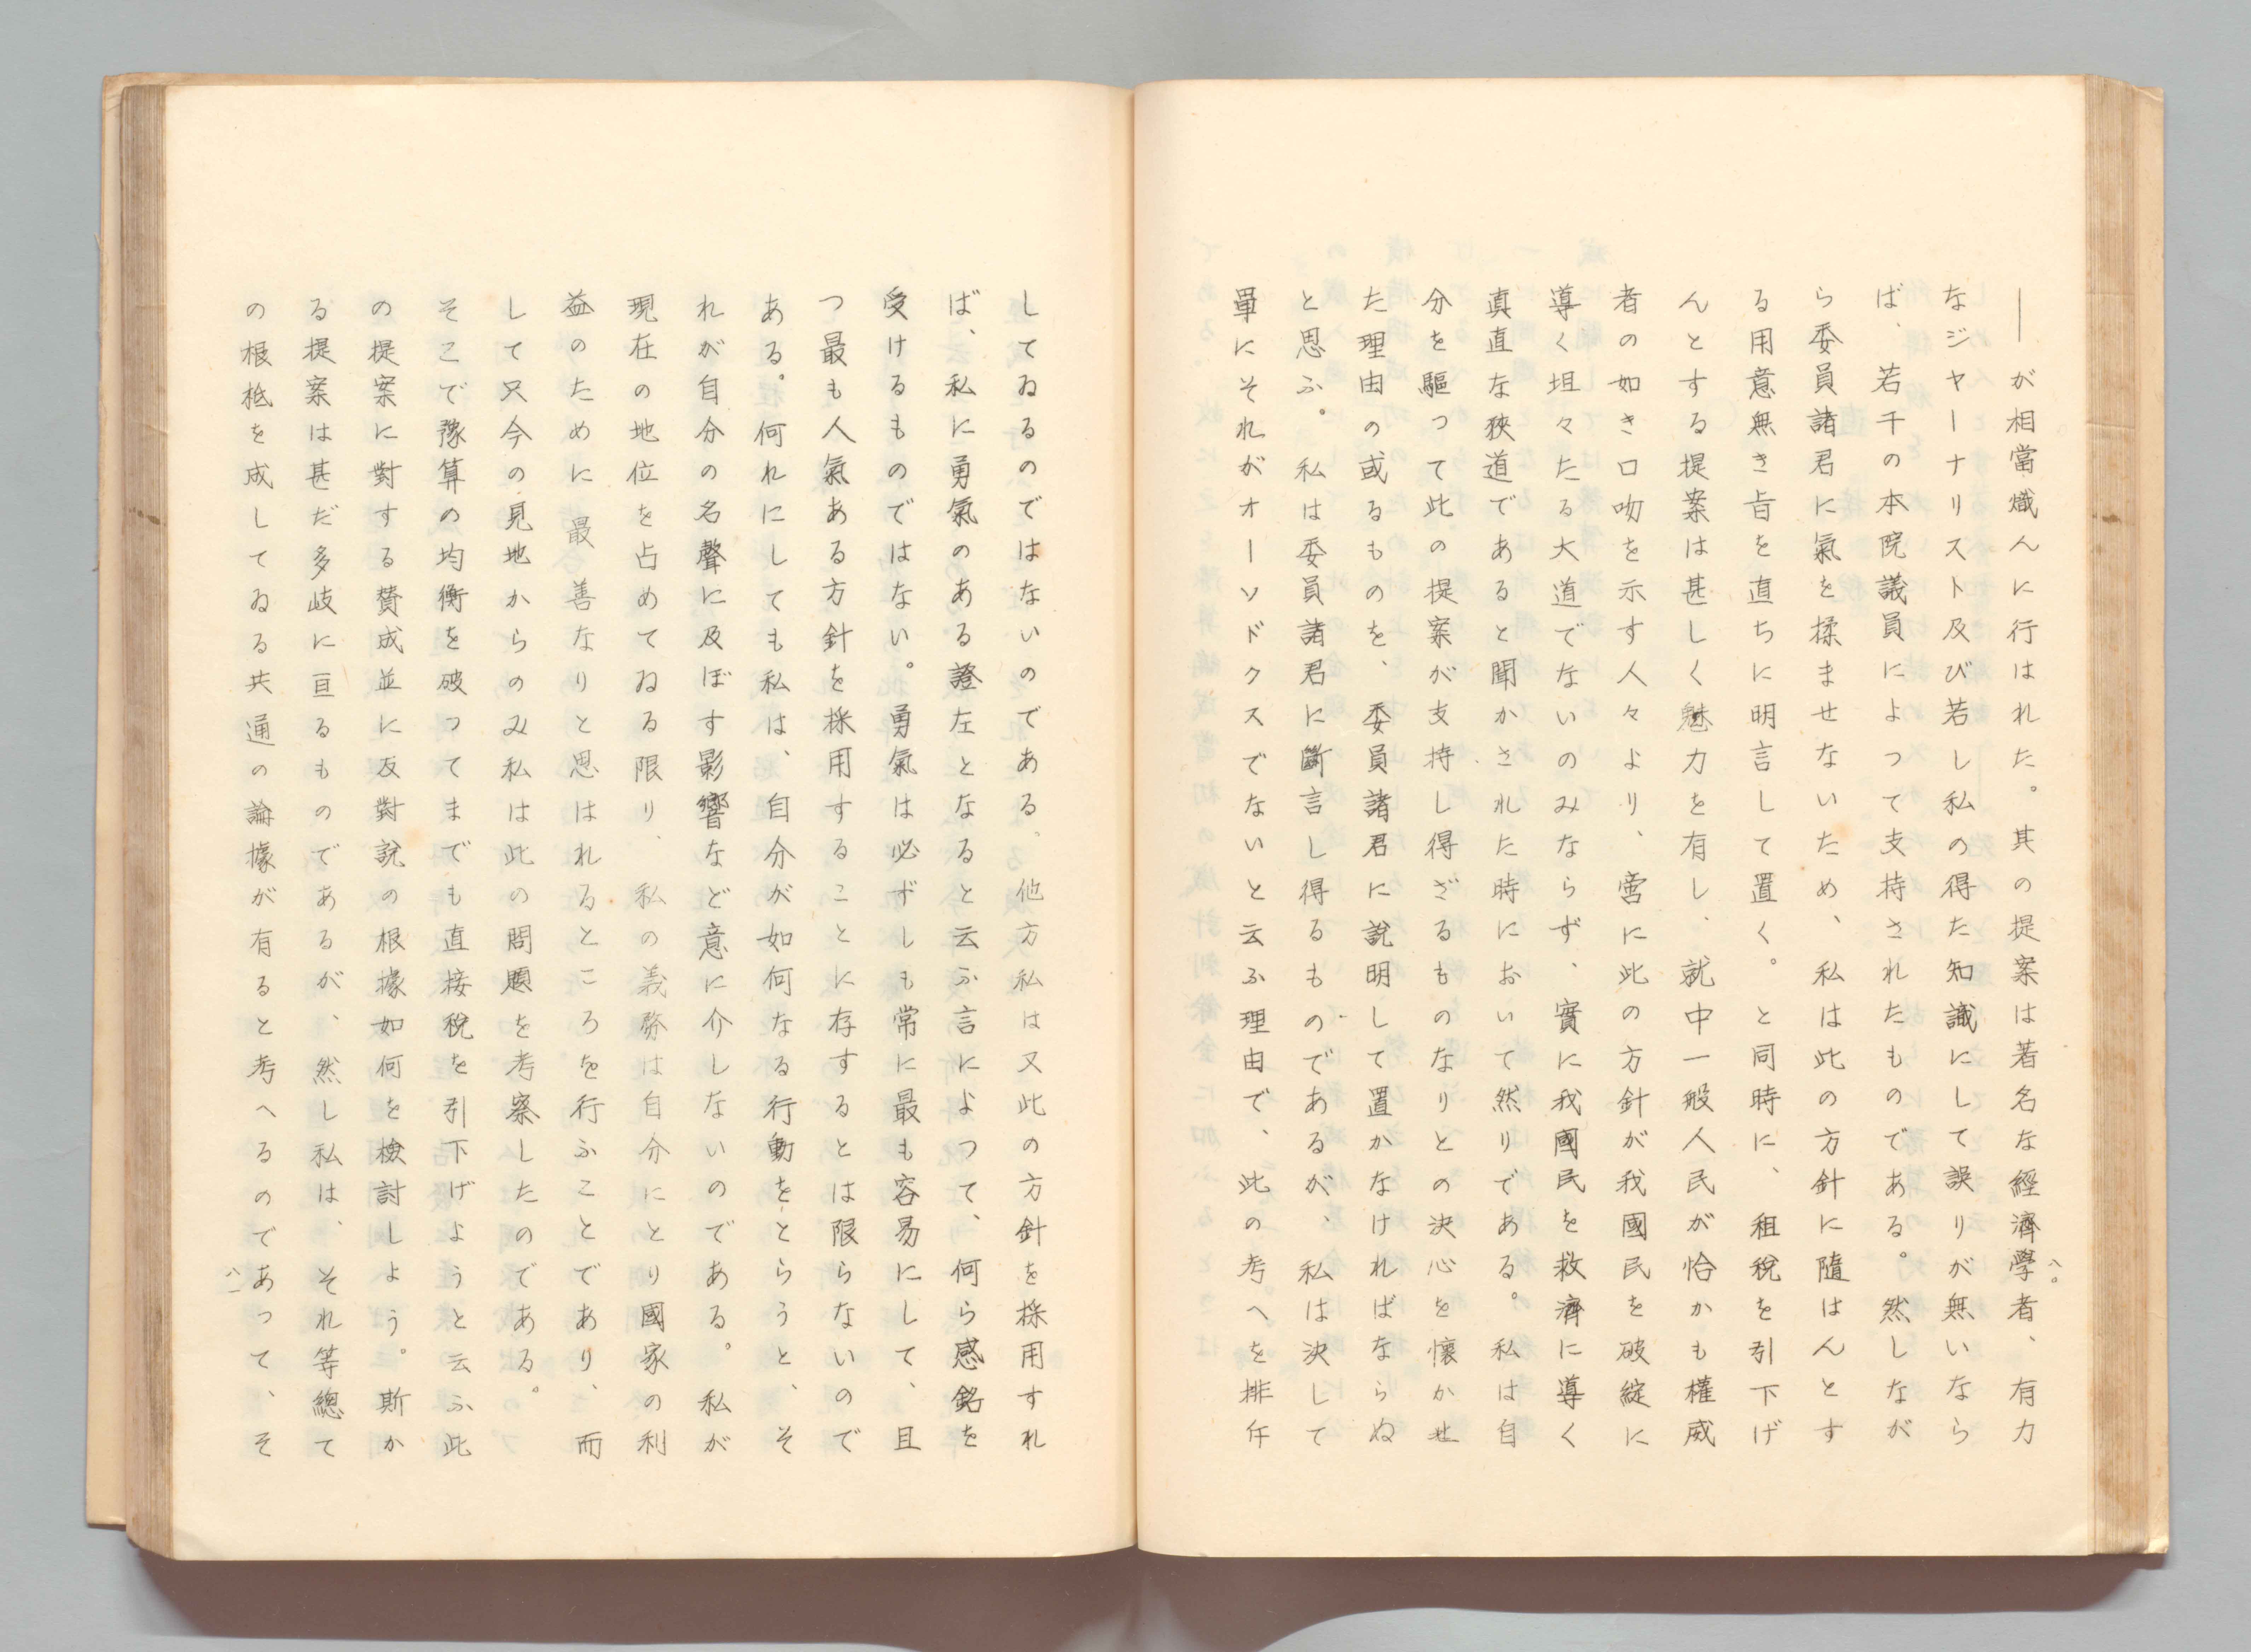 ――が相當熾んに行はれた。其の提案は著名な經濟學者、有力
なジャーナリスト及び若し私の得た知識にして誤りが無いなら
ば、若干の本院議員によつて支持されたものである。然しなが
ら委員諸君に氣を揉ませないため、私は此の方針に隨はんとす
る用意無き旨を直ちに明言して置く。と同時に、租稅を引下げ
んとする提案は甚しく魅力を有し、就中一般人民が恰かも權威
者の如き口吻を示す人々より、啻に此の方針が我國民を破綻に
導く坦々たる大道でないのみならず、實に我國民を救濟に導く
真直な狹道であると聞かされた時において然りである。私は自
分を驅つて此の提案が支持し得ざるものなりとの決心を懷かせ
た理由の或るものを、委員諸君に說明して置かなければならぬ
と思ふ。私は委員諸君に斷言し得るものであるが、私は決して
單にそれがオーソドクスでないと云ふ理由で、此の考へを排斥
八〇
してゐるのではないのである、他方私は又此の方針を採用すれ
ば、私に勇氣のある證左となると云ふ言によつて、何ら感銘を
受けるものではない。勇氣は必ずしも常に最も容易にして、且
つ最も人氣ある方針を採用することに存するとは限らないので
ある。何れにしても私は、自分が如何なる行動をとらうと、そ
れが自分の名聲に及ぼす影響など意に介しないのである。私が
現在の地位を占めてゐる限り、私の義務は自分にとり國家の利
益のために最善なりと思はれるところを行ふことであり、而
して只今の見地からのみ私は此の問題を考察したのである。
そこで豫算の均衡を破つてまでも直接稅を引下げようと云ふ此
の提案に對する贊成並に反對說の根據如何を檢討しよう。斯か
る提案は甚だ多岐に亘るものであるが、然し私は、それ等總て
の根柢を成してゐる共通の論據が有ると考へるのであつて、そ
八一